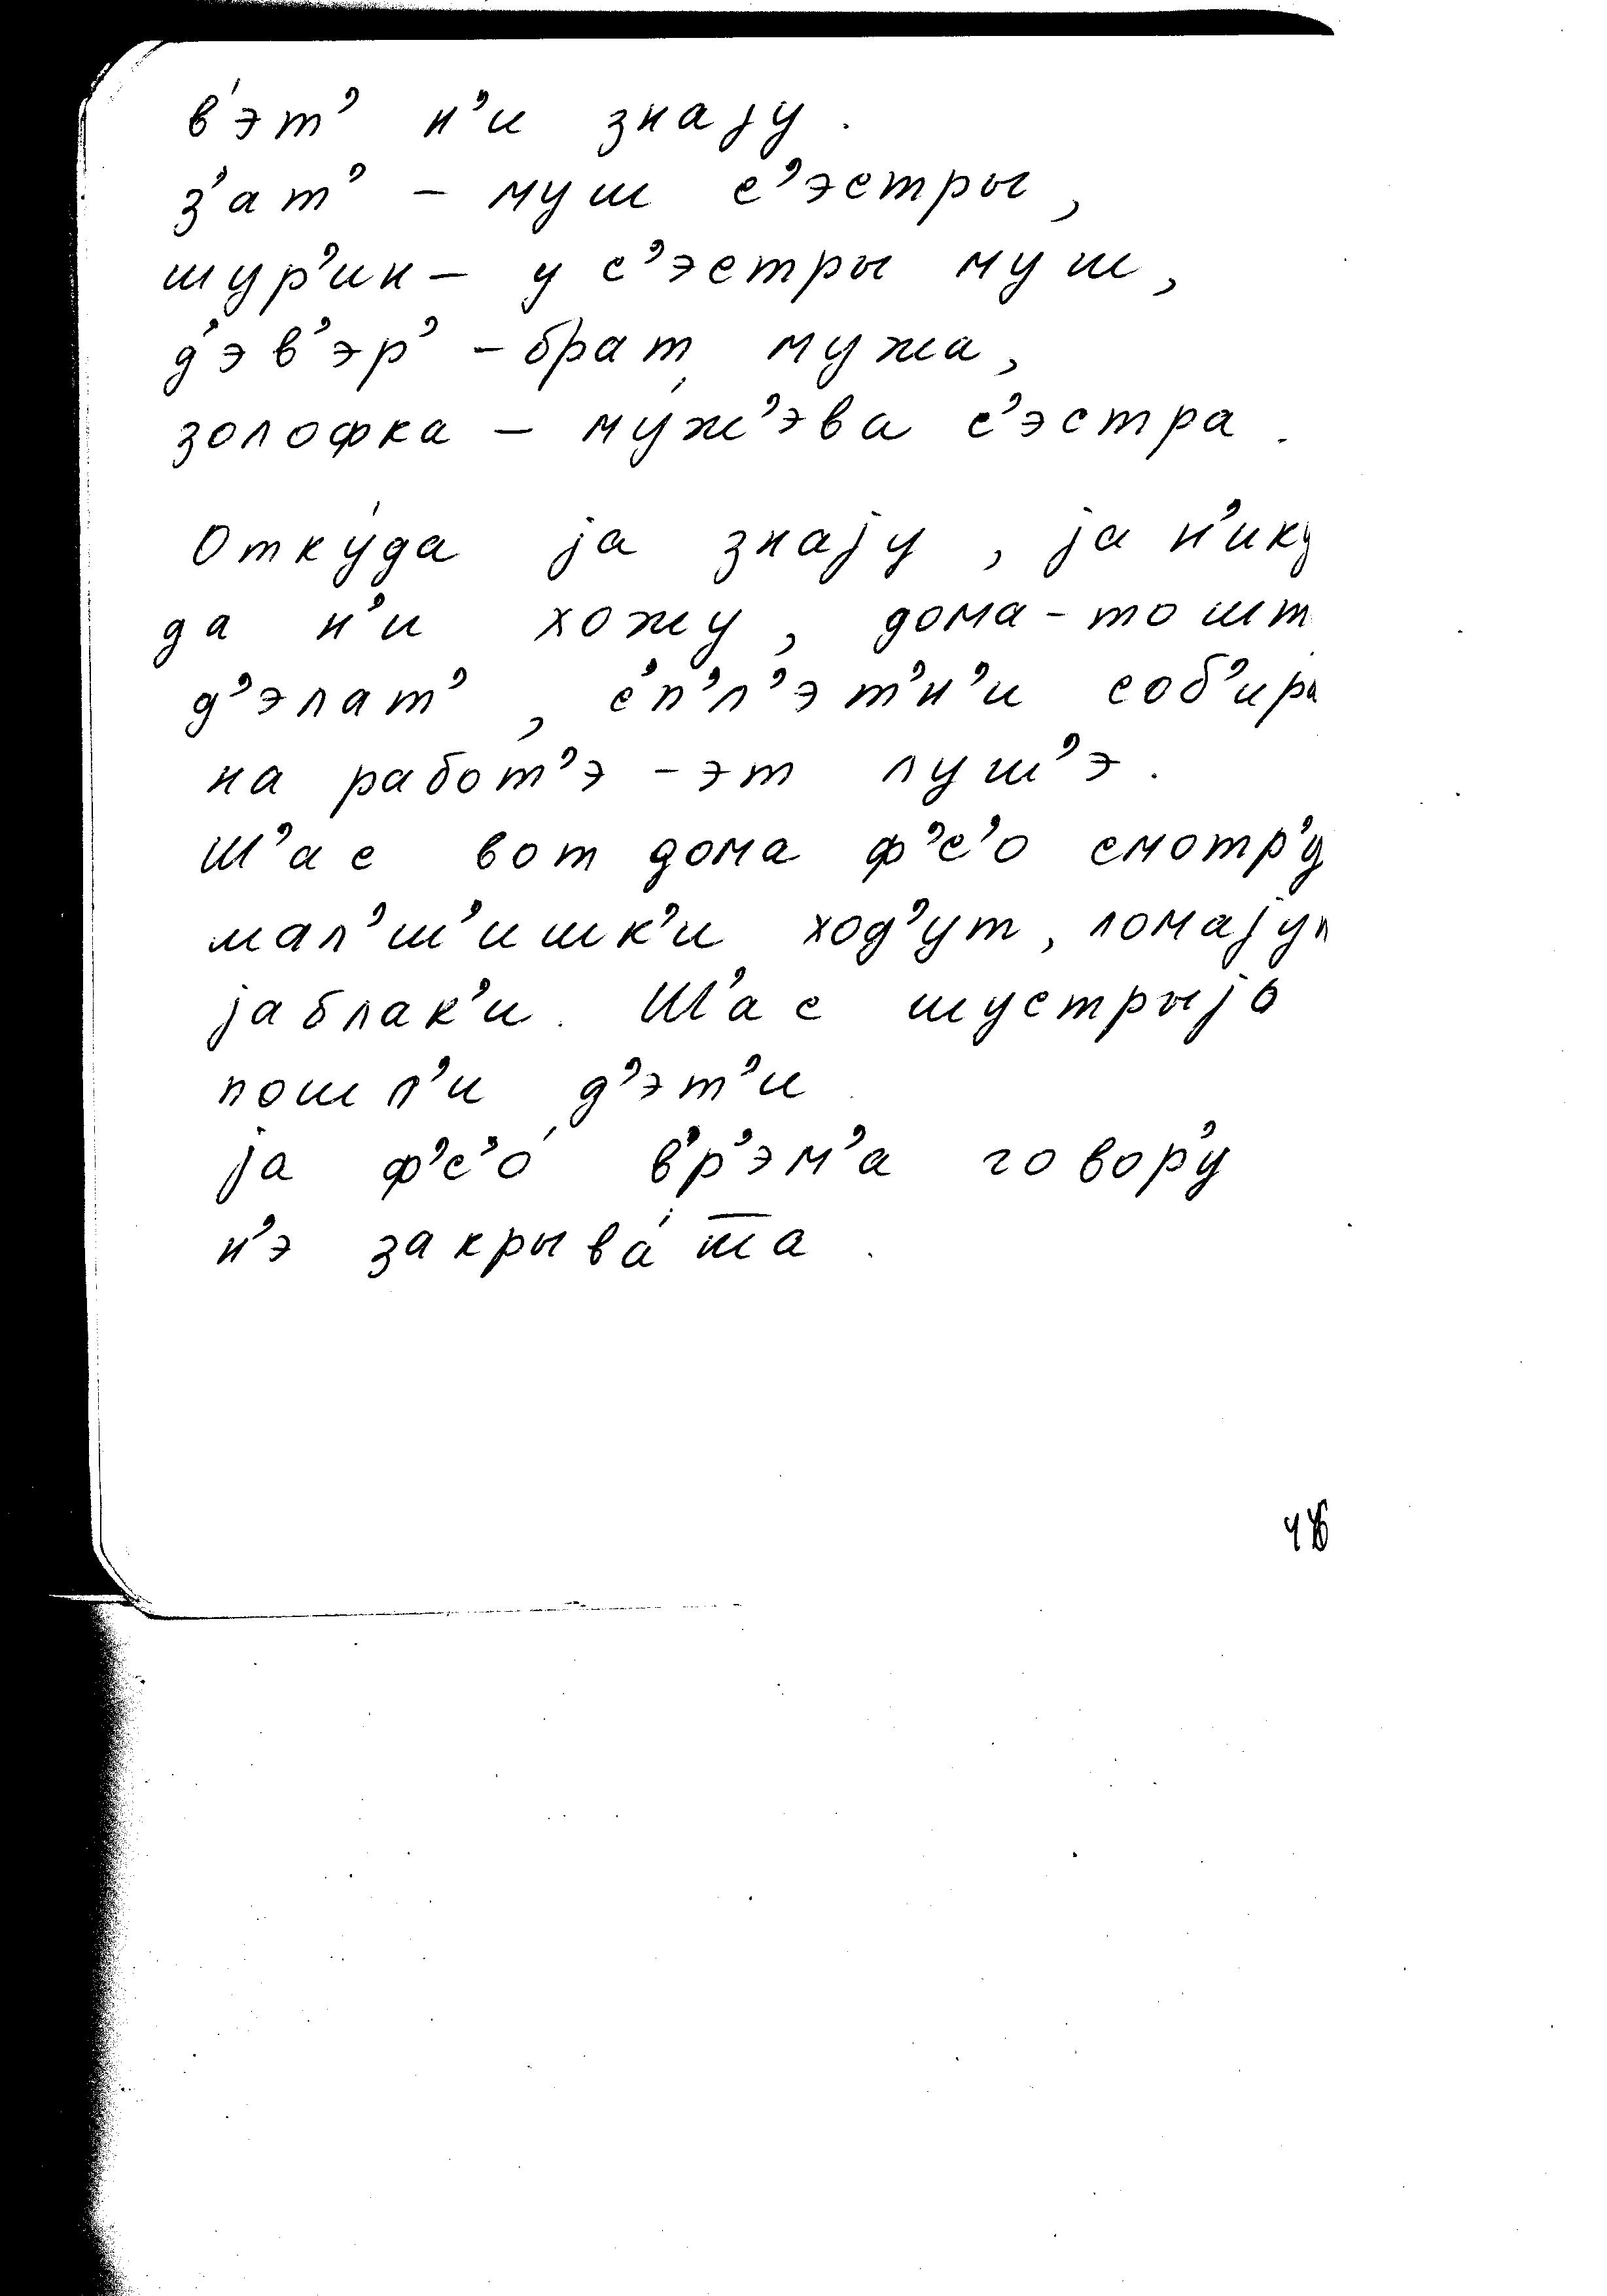 в'эт' н'и знаjу.
з'ат' – муш с'эстры,
шур'ин – у с'эстры муш,
д'эв'эр' – брат мужа,
золофка – му́ж'эва с'эстра.
Отку́да jа знаjу, jа н'ику
да н'и хожу, дома-то шт
д'элат', с'п'л'э́т'н'и соб'ира
на рабо́т'э – эт луш'э.
Ш'ас вот дома ф'с'о смотр'у
мал'ш'ишк'и ход'ут, ломаjут
jаблак'и. Ш'ас шустрыjо
пошл'и д'эт'и
jа ф'с'о́ в'р'эм'а говор'у
н'э закрыва́т̅а.